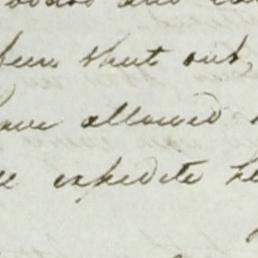 and
been shut out,
have allowed
expedite he